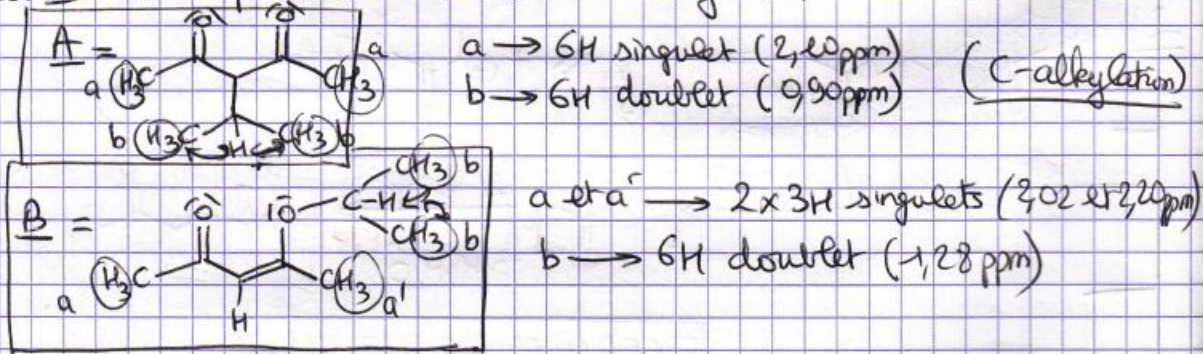 A =
O O
a H3C CH3 a
b H3C HC CH3 b
a → 6H singulet (2,20ppm)
b → 6H doublet (0,90ppm)
(C-alkylation)
B =
O IO C-H CH3 b
CH3 b
a H3C CH3 a'
H
a et a' → 2x3H singulets (2,02 et 2,20ppm)
b → 6H doublet (1,28 ppm)